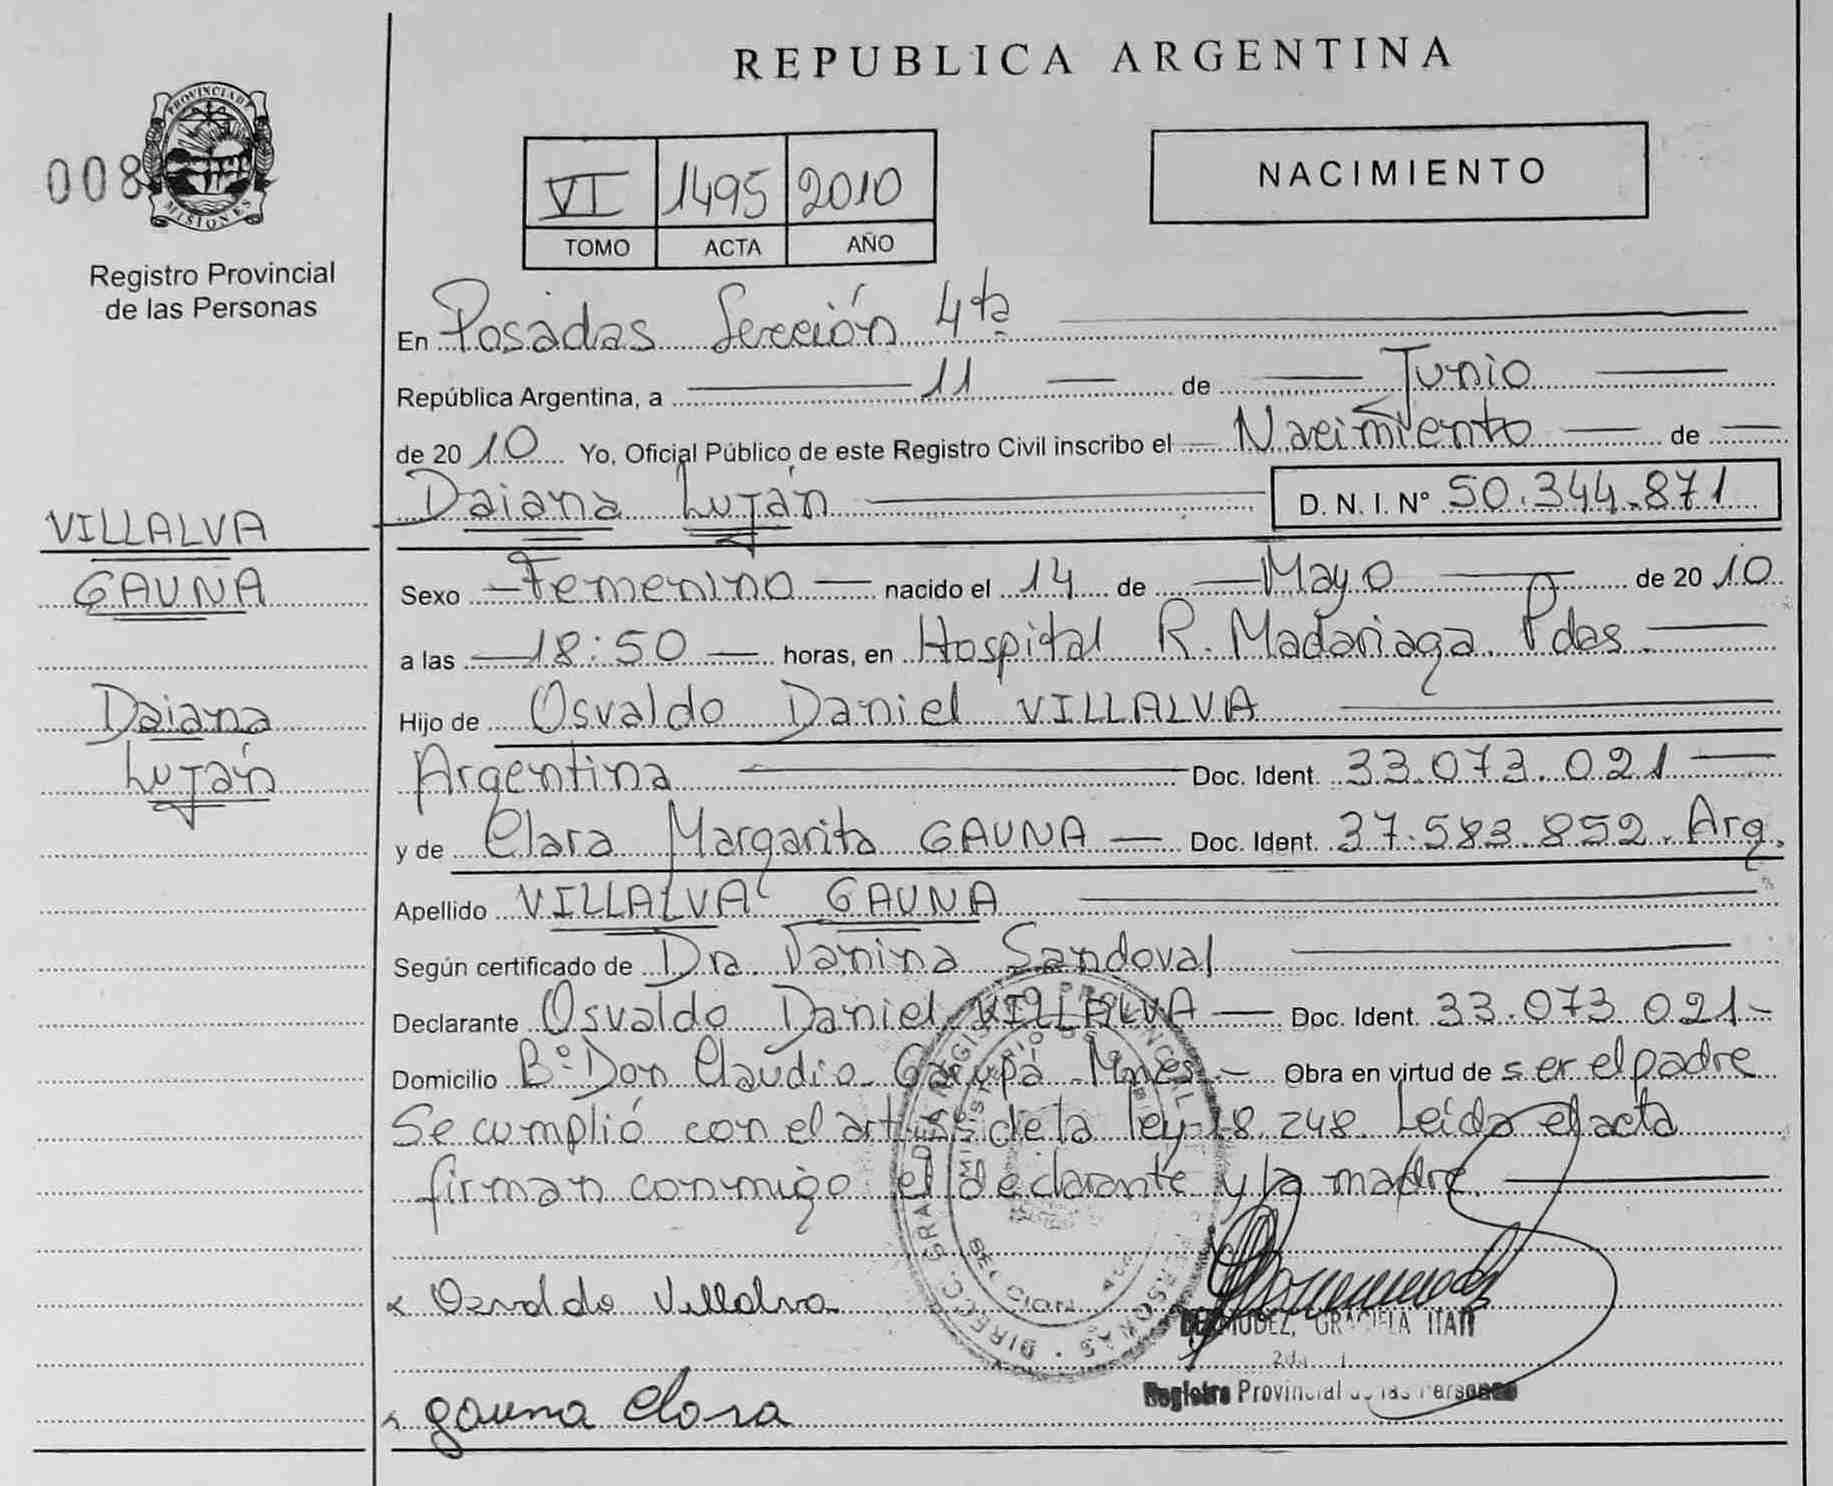 REPUBLICA ARGENTINA
PROVINCIA DE
MISIONES
008
Registro Provincial
de las Personas
VI 1495 2010
TOMO ACTA AÑO
NACIMIENTO
VILLALVA
GAUNA
Daiana
Luján
En Posadas Sección 4ta
República Argentina, a 11 de Junio
de 2010 Yo, Oficial Público de este Registro Civil inscribo el Nacimiento de
Daiana Luján D. N. I. Nº 50.344.871
Sexo Femenino nacido el 14 de Mayo de 2010
a las 18:50 horas, en Hospital R. Madariaga. Pdas.
Hijo de Osvaldo Daniel VILLALVA
Argentina Doc. Ident. 33.073.021
y de Clara Margarita GAUNA Doc. Ident. 37.583.852. Arg.
Apellido VILLALVA GAUNA
Según certificado de Dra. Vanina Sandoval
Declarante Osvaldo Daniel VILLALVA Doc. Ident. 33.073.021
Domicilio Bº Don Claudio. Garupá Mnes. Obra en virtud de ser el padre
Se cumplió con el art de la ley 18.248. Leída el acta
firman conmigo el declarante y la madre.
Osvaldo Villalva
BERMUDEZ, GRACIELA ITATI
Registro Provincial de las Personas
Gauna Clara